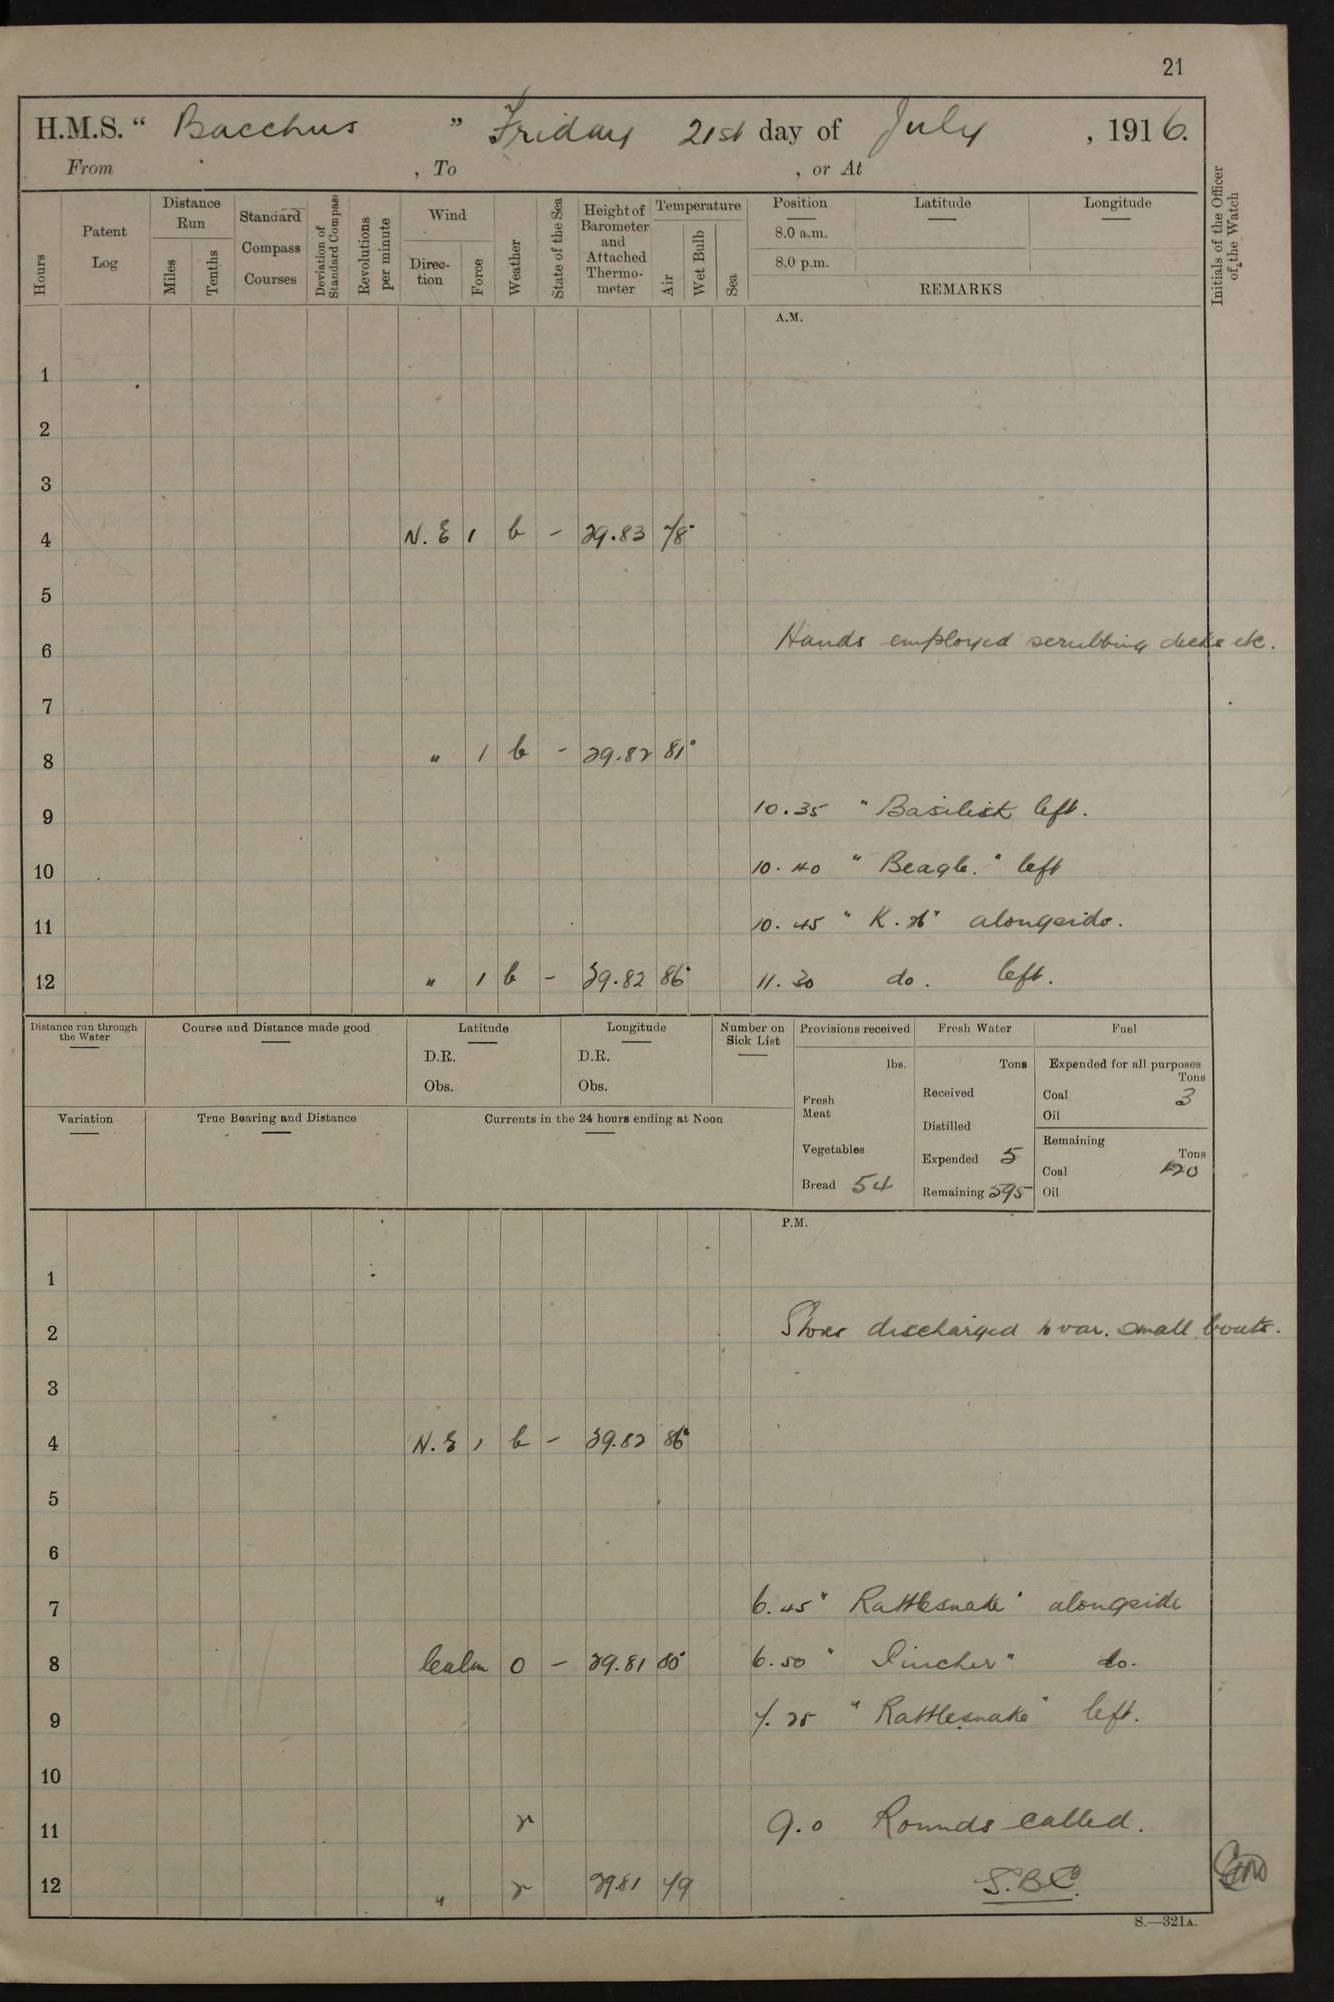 21
H.M.S. “ Bacchus ” Friday 21st day of July , 1916.
From , To , or At
Hours
Patent Log
Distance Run
Miles
Tenths
Standard Compass Courses
Deviation of Standard Compass
Revolutions per minute
Wind
Direction
Force
Weather
State of the Sea
Height of Barometer and Attached Thermometer
Temperature
Air
Wet Bulb
Sea
Position
8.0 a.m.
8.0 p.m.
Latitude
Longitude
REMARKS
Initials of the Officer of the Watch
A.M.
1
2
3
4 N.E 1 b - 29.83 78°
5
6 Hands employed scrubbing decks etc.
7
8 " 1 b - 29.82 81°
9 10.35 " Basilisk left.
10 10.40 " Beagle." left
11 10.45 " K. " alongside.
12 " 1 b - 29.82 86° 11.30 do. left.
Distance run through the Water
Course and Distance made good
Latitude
D.R.
Obs.
Longitude
D.R.
Obs.
Number on Sick List
Provisions received
lbs.
Fresh Meat
Vegetables
Bread 54
Fresh Water
Tons
Received
Distilled
Expended 5
Remaining 595
Fuel
Expended for all purposes
Tons
Coal 3
Oil
Remaining
Tons
Coal 120
Oil
Variation
True Bearing and Distance
Currents in the 24 hours ending at Noon
P.M.
1
2 Stores discharged to var. small boats.
3
4 N.E 1 b - 29.82 86°
5
6
7 6.45 " Rattlesnake" alongside
8 Calm 0 - 29.81 80° 6.50 " Pincher" do.
9 7.25 " Rattlesnake" left.
10
11 r 9.0 Rounds called.
12 " r 29.81 79 S.B.C.
S.—321A.